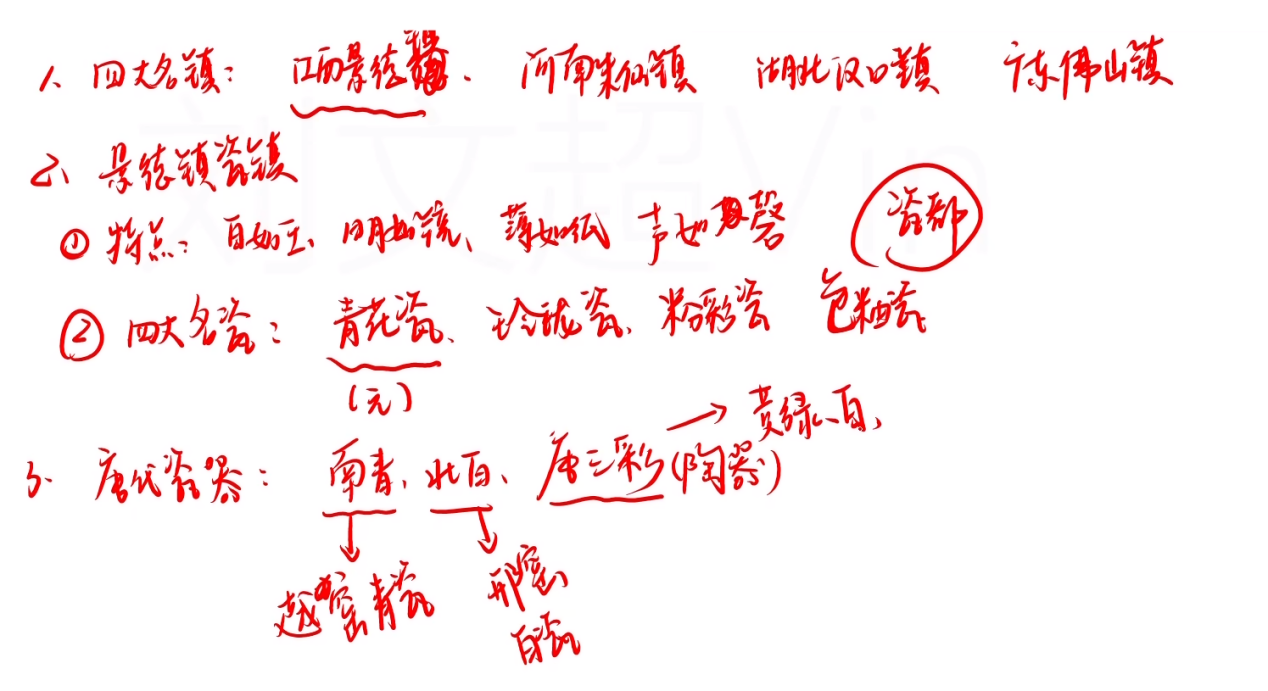 1、四大名镇：江西景德镇、河南朱仙镇 湖北汉口镇 广东佛山镇
2、景德镇瓷镇
① 特点：白如玉、明如镜、薄如纸 声如磬 瓷都
② 四大名瓷：青花瓷、玲珑瓷、粉彩瓷 色釉瓷
(元)
黄绿、白、
3、唐代瓷器：南青、北白、唐三彩(陶器)
越窑青瓷 邢窑
白瓷
刘文超Vin